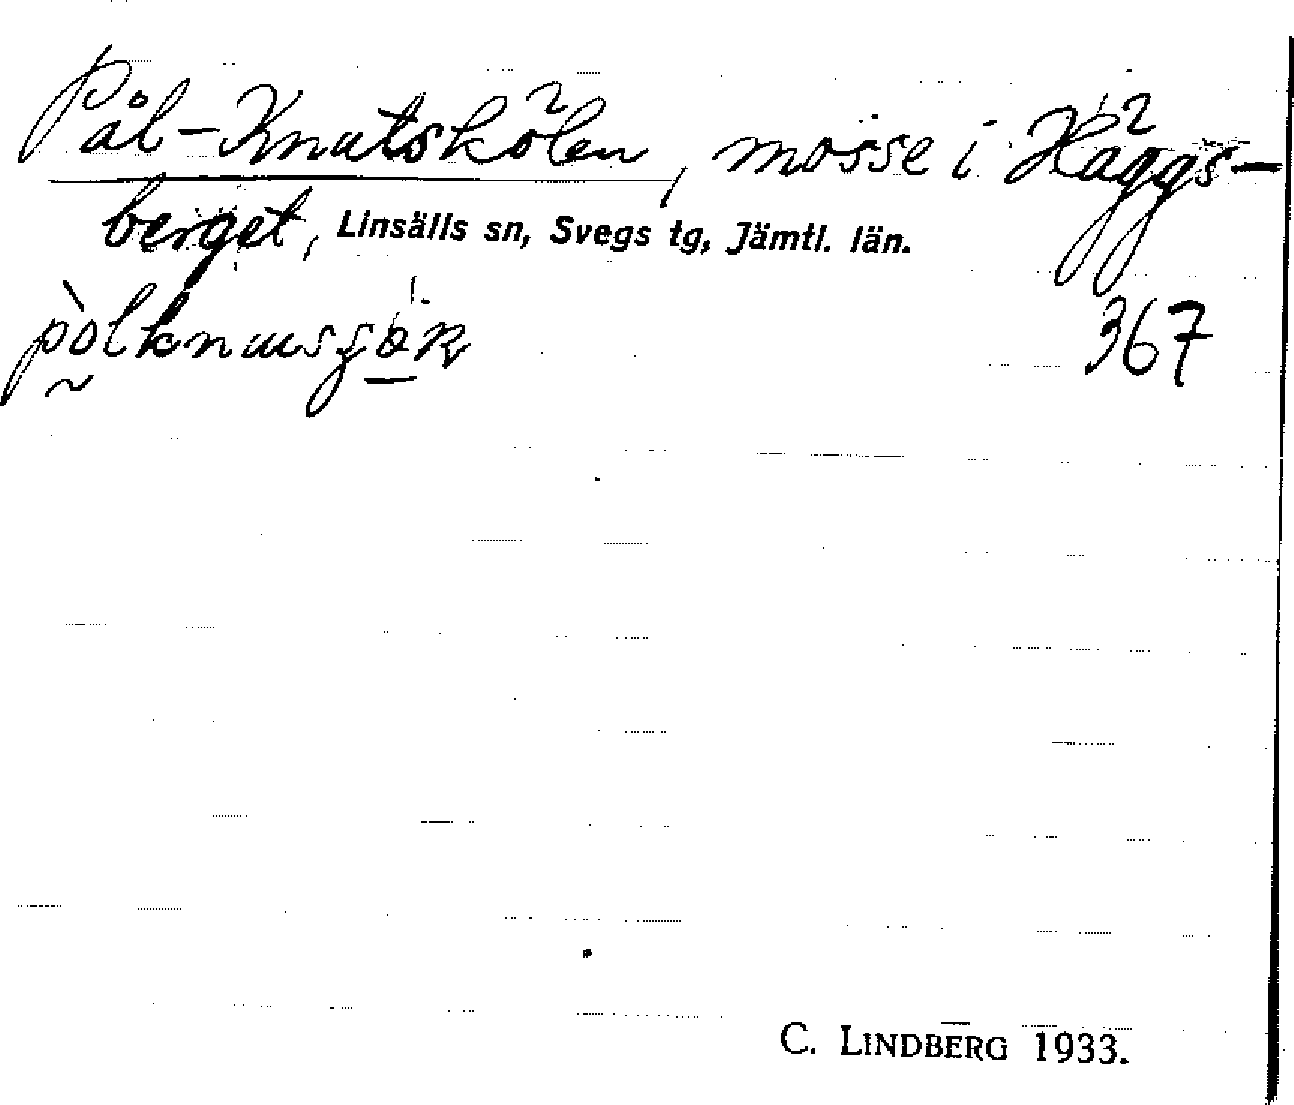 Pål-Knutskölen, mosse i Häggs-
berget, Linsälls sn, Svegs tg, Jämtl. län.
367
C. LINDBERG 1933.